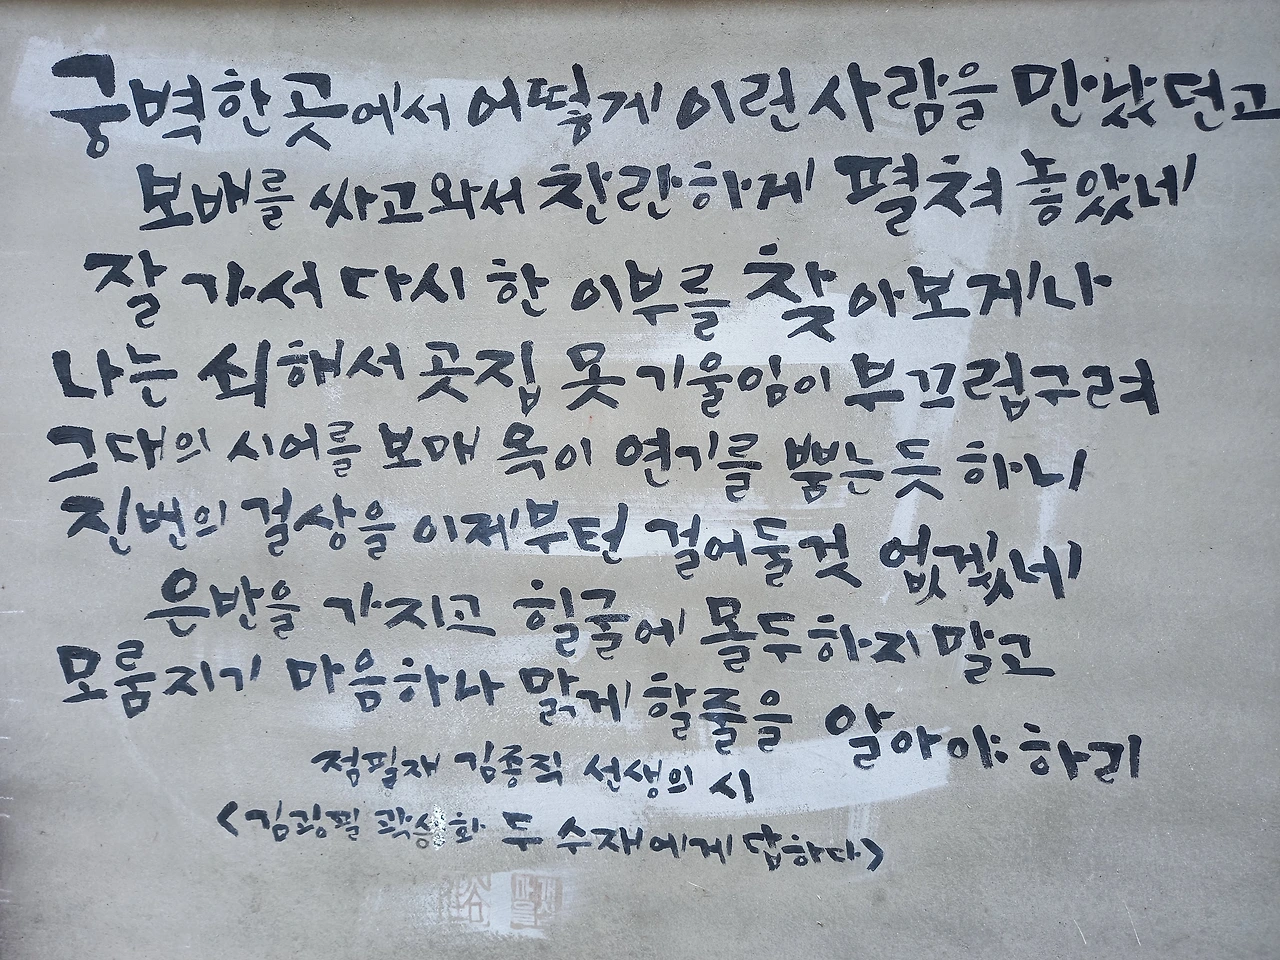 궁벽한 곳에서 어떻게 이런 사람을 만났던고
보배를 싸고와서 찬란하게 펼쳐 놓았네
잘 가서 다시 한 이부를 찾아보게나
나는 쇠해서 곳집 못 기울임이 부끄럽구려
그대의 시어를 보매 옥이 연기를 뿜는듯 하니
진번의 걸상을 이제부턴 걸어둘것 없겠네
은반을 가지고 힐굴에 몰두하지 말고
모름지기 마음하나 맑게 할줄을 알아야 하리
점필재 김종직 선생의 시
<김굉필 곽승화 두 수재에게 답하다>